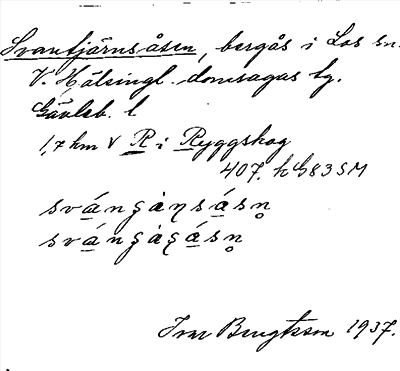 Svantjärnsåsen, bergås i Los sn.
V. Hälsingl. domsagas tg.
Gävleb. l
1,7 km V R i Ryggskog
407. h G83SM
svánşàṇsásn̥
svánşàşásn̥
Ivar Bengtsson 1937.